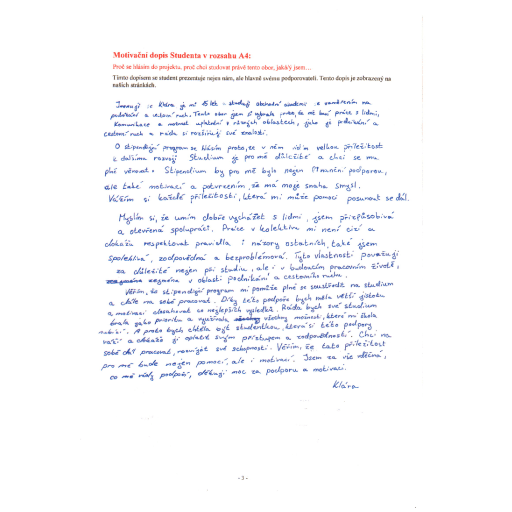 Motivační dopis Studenta v rozsahu A4:
Proč se hlásím do projektu, proč chci studovat právě tento obor, jaká/ý jsem…
Tímto dopisem se student prezentuje nejen nám, ale hlavně svému podporovateli. Tento dopis je zobrazený na
našich stránkách.
Jmenuji se Klára je mi 15 let - studuji obchodní akademii se zaměřením na
podnikání a cestovní ruch. Tento obor jsem si vybrala, protože mě baví práce s lidmi,
komunikace a možnost uplatnění v různých oblastech, jako je podnikání a
cestovní ruch a ráda si rozšiřuji své znalosti.
O stipendijní program se hlásím proto, že v něm vidím velkou příležitost
k dalšímu rozvoji. Studium je pro mě důležité a chci se mu
plně věnovat. Stipendium by pro mě bylo nejen finanční podporou,
ale také motivací a potvrzením, že má moje snaha smysl.
Vážím si každé příležitosti, která mi může pomoci posunout se dál.
Myslím si, že umím dobře vycházet s lidmi, jsem přizpůsobivá
a otevřená spolupráci. Práce v kolektivu mi není cizí a
dokážu respektovat pravidla i názory ostatních, také jsem
spolehlivá, zodpovědná a bezproblémová. Tyto vlastnosti považuji
za důležité nejen při studiu, ale i v budoucím pracovním životě,
zejména v oblasti podnikání a cestovního ruchu.
Věřím, že stipendijní program mi pomůže plně se soustředit na studium
a dále na sobě pracovat. Díky této podpoře bych měla větší jistotu
a motivaci dosahovat co nejlepších výsledků. Ráda bych své studium
brala jako prioritu a využívala všechny možnosti, které mi škola
nabízí. A proto bych chtěla být studentkou, která si této podpory
váží a dokáže ji oplatit svým přístupem a zodpovědností. Chci na
sobě dál pracovat, rozvíjet své schopnosti. Věřím, že tato příležitost
pro mě bude nejen pomocí, ale i motivací. Jsem za vše vděčná,
co mě vždy podpoří, děkuji moc za podporu a motivaci.
Klára
- 3 -